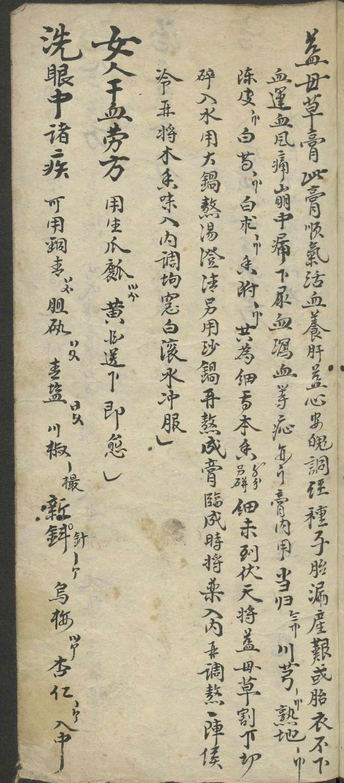 益母草膏 此膏順氣活血養肝益心安魄調經種子胎漏產難或胎衣不下
血運血風痛崩中漏下尿血瀉血等症 膏內用当归 川芎 熟地
陳皮 白芍 白求 香附 共為細 木香 另研 細末到伏天將益母草割下切
碎入水用大鍋熬湯澄清另用沙鍋再熬成膏臨成時將藥入內再調熬一陣侯
冷再將木香味入內調均 白滾水冲服
女人干血劳方 用生爪瓤 黃 送下即愈
洗眼中諸疾 可用銅青 胆矾 青盐 川椒一撮 新 針 烏梅 杏仁 入中